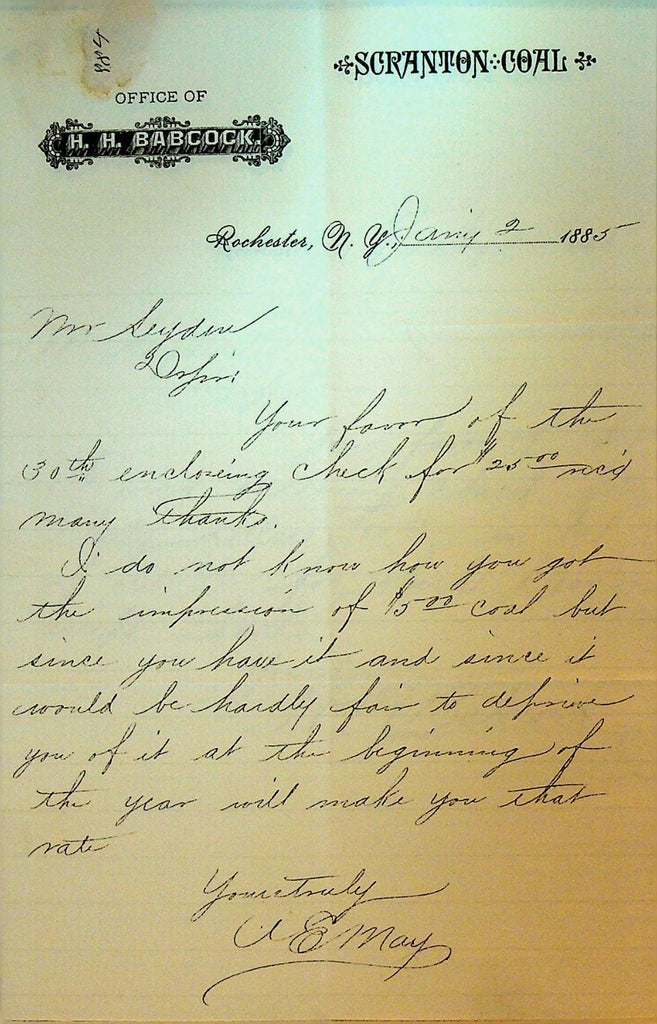 884
SCRANTON COAL
OFFICE OF
H. H. BABCOCK.
Rochester, N. Y., Jany 2 1885
Mr
D Sir:
Your favor of the
30th enclosing check for $25.00 rec'd
many thanks.
I do not know how you got
the impression of $5.00 coal but
since you have it and since it
would be hardly fair to deprive
you of it at the beginning of
the year will make you that
rate
Yours truly
E May